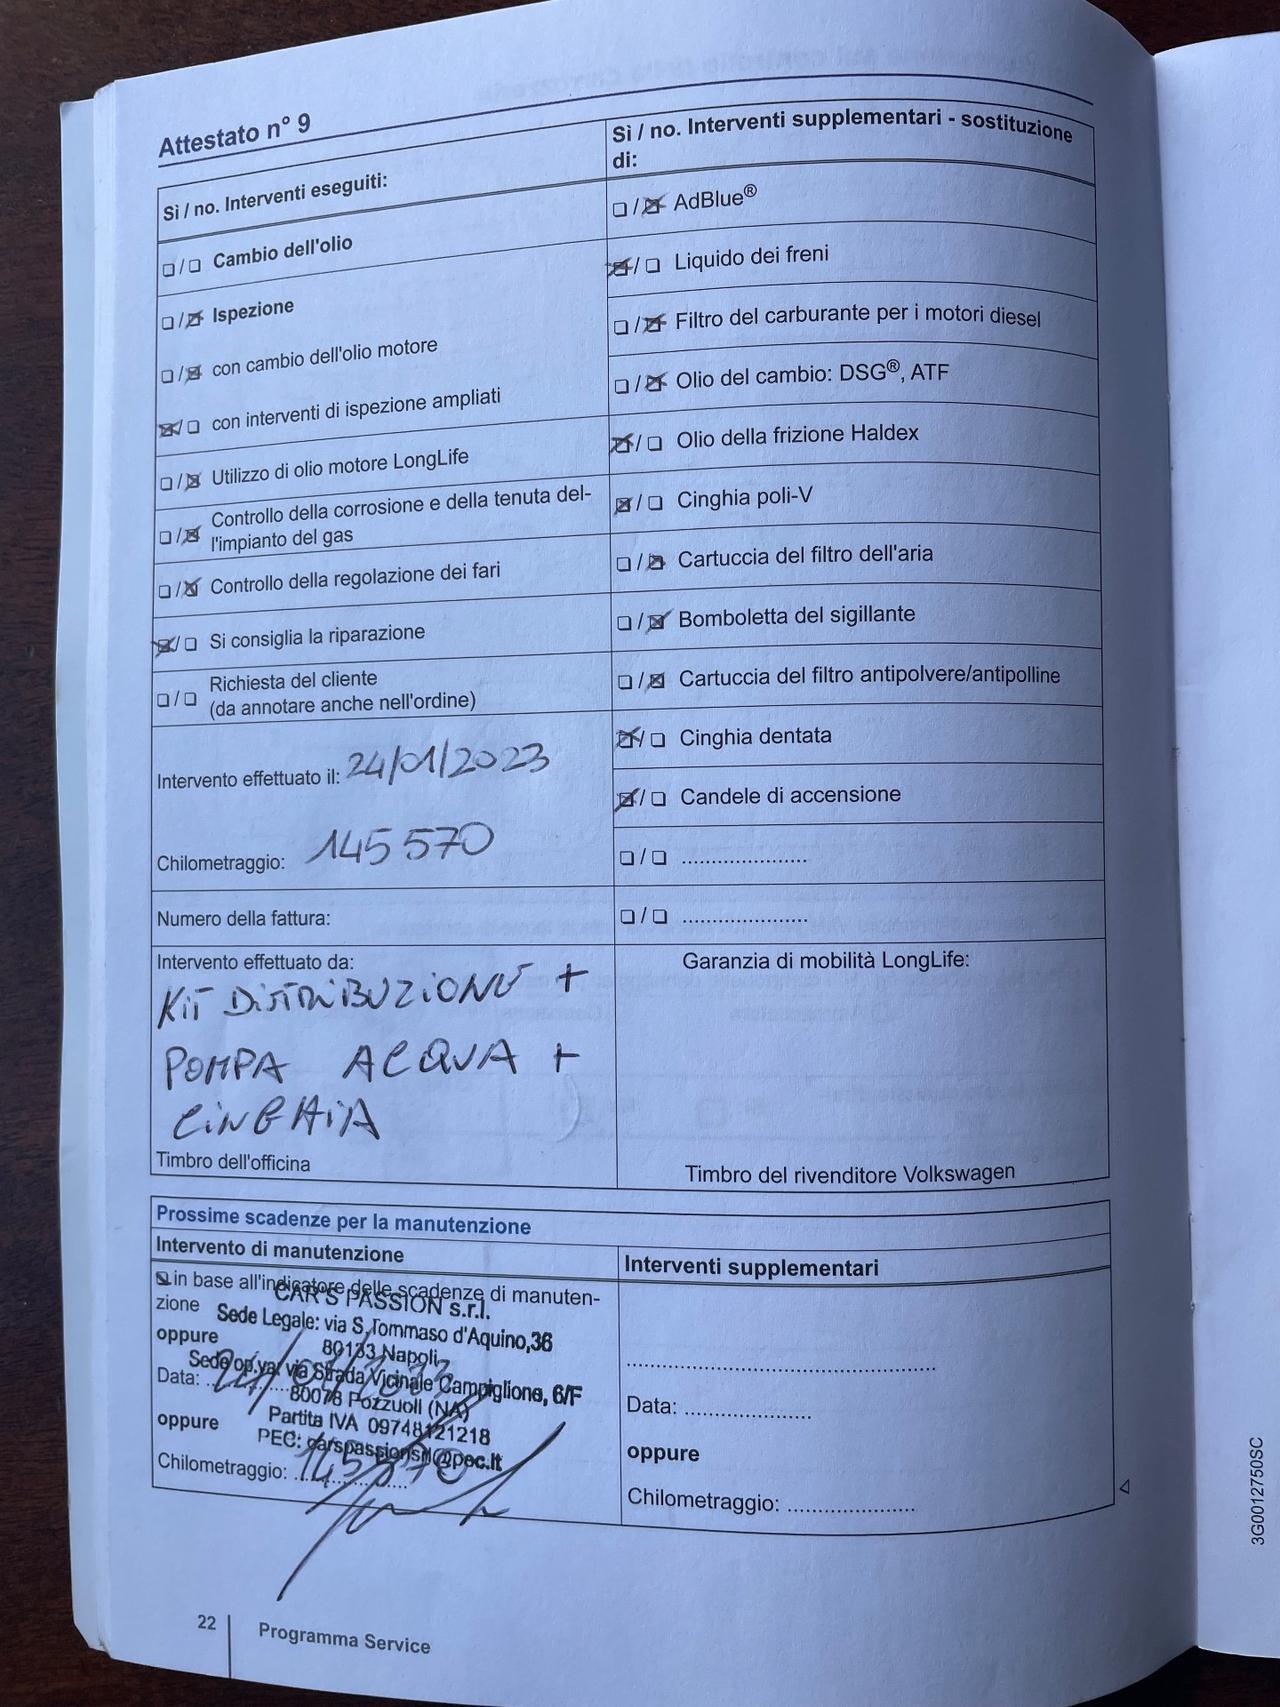 Attestato n° 9
Sì / no. Interventi eseguiti:
☐/☐ Cambio dell'olio
☐/☒ Ispezione
☐/☒ con cambio dell'olio motore
☒/☐ con interventi di ispezione ampliati
☐/☒ Utilizzo di olio motore LongLife
☐/☒ Controllo della corrosione e della tenuta del-
l'impianto del gas
☐/☒ Controllo della regolazione dei fari
☒/☐ Si consiglia la riparazione
☐/☐ Richiesta del cliente
(da annotare anche nell'ordine)
Intervento effettuato il: 24/01/2023
Chilometraggio: 145570
Numero della fattura:
Intervento effettuato da:
KIT DISTRIBUZIONE +
POMPA ACQUA +
CINGHIA
Timbro dell'officina
Sì / no. Interventi supplementari - sostituzione
di:
☐/☒ AdBlue®
☒/☐ Liquido dei freni
☐/☒ Filtro del carburante per i motori diesel
☐/☒ Olio del cambio: DSG®, ATF
☒/☐ Olio della frizione Haldex
☒/☐ Cinghia poli-V
☐/☒ Cartuccia del filtro dell'aria
☐/☒ Bomboletta del sigillante
☐/☒ Cartuccia del filtro antipolvere/antipolline
☒/☐ Cinghia dentata
☒/☐ Candele di accensione
☐/☐ .....................
☐/☐ .....................
Garanzia di mobilità LongLife:
Timbro del rivenditore Volkswagen
Prossime scadenze per la manutenzione
Intervento di manutenzione
☒ in base all'indicatore delle scadenze di manuten-
zione
oppure
Data: 24/01/2023
oppure
Chilometraggio: 145570
CAR'S PASSION s.r.l.
Sede Legale: via S.Tommaso d'Aquino,36
80133 Napoli
Sede op.va: via Strada Vicinale Campiglione, 6/F
80078 Pozzuoli (NA)
Partita IVA 09748121218
PEC: carspassionsrl@pec.it
Interventi supplementari
..................................................
Data: .....................
oppure
Chilometraggio: .....................
22
Programma Service
3G0012750SC